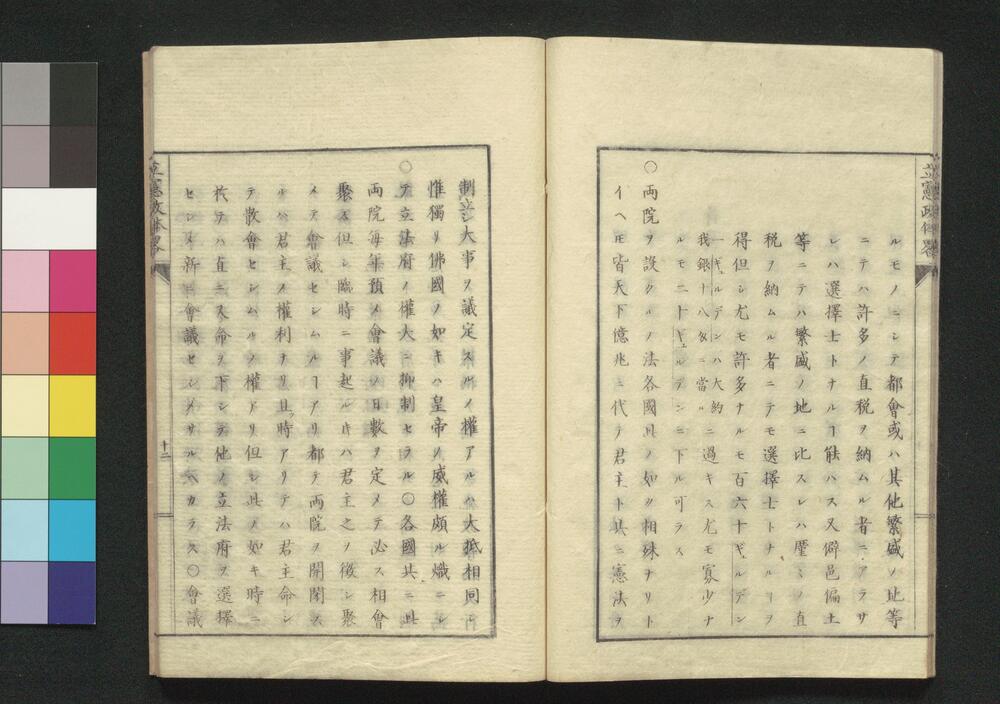 立憲政体略
ルモノニシテ都會或ハ其他繁盛ノ地等
ニテハ許多ノ直税ヲ納ムル者ニアラサ
レハ選擇士トナルヿ能ハス又僻邑偏土
等ニテハ繁盛ノ地ニ比スレハ僅ミノ直
税ヲ納ムル者ニテモ選擇士トナルヿヲ
得但シ尤モ許多ナルモ百六十ギュルデン
一ギュルデンハ大約
我銀十八匁ニ當ル
ニ過キス尤モ寡少ナ
ルモ二十ギュルデンニ下ル可ラス
○両院ヲ設クルノ法各國其ノ如ク相殊ナリト
イヘ𪜈皆天下億兆ニ代テ君主ト共ニ憲法ヲ
制立シ大事ヲ議定スルノ權アルハ大抵相同シ
惟獨リ佛國ノ如キハ皇帝ノ威權頗ル熾ニシ
○テ立法府ノ權大ニ抑制セラル○各國共ニ此
両院毎年預メ會議ノ日數ヲ定メテ必ス相會
聚ス但シ臨時ニ事起ル𪜈ハ君主之ヲ徴シ聚
メテ會議セシムルヿアリ都テ両院ヲ開閉ス
ルハ君主ノ權利ナリ且ツ時アリテハ君主命シ
テ散會セシムルノ權アリ但シ此ノ如キ時ニ
於テハ直ニ又命ヲ下シテ他ノ立法府ヲ選擇
セシメ新ニ會議セシメサルヘカラス○會議
立憲政体略
十二